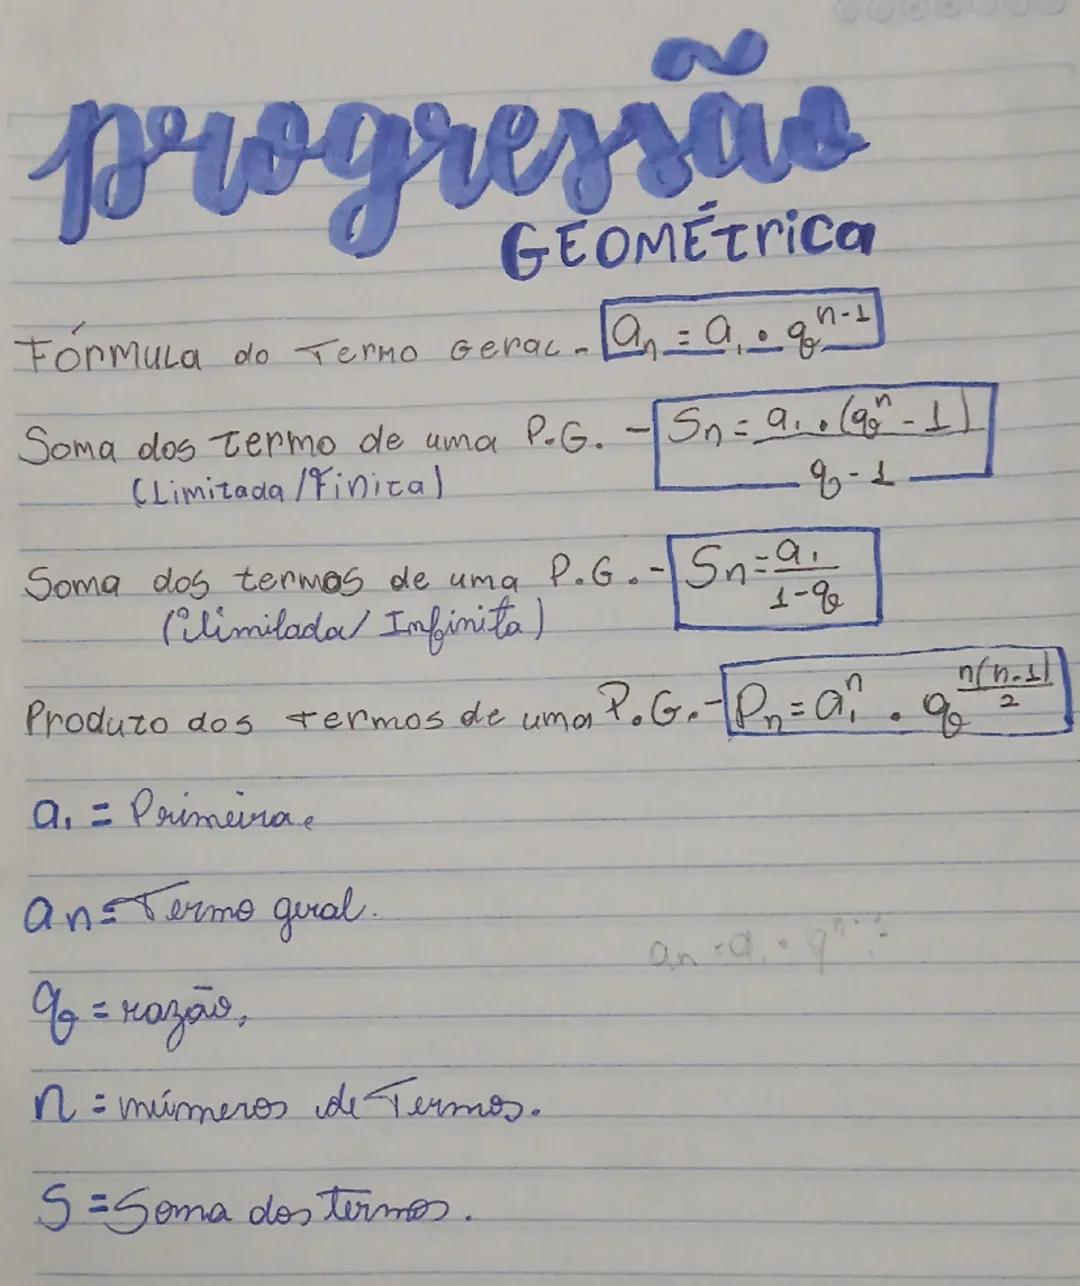 progressão
GEOMÉTrica
Fórmula do Termo Geral - an = a1 . q^(n-1)
Soma dos termo de uma P.G. - Sn = a1 . (q^n - 1) / (q - 1)
(Limitada/Finita)
Soma dos termos de uma P.G. - Sn = a1 / (1 - q)
(ilimitada/Infinita)
Produto dos termos de uma P.G. - Pn = a1^n . q^(n(n-1)/2)
a1 = Primeira.
an = Termo geral.
an = a1 . q^n-1
q = razão,
n = números de Termos.
S = Soma dos termos.